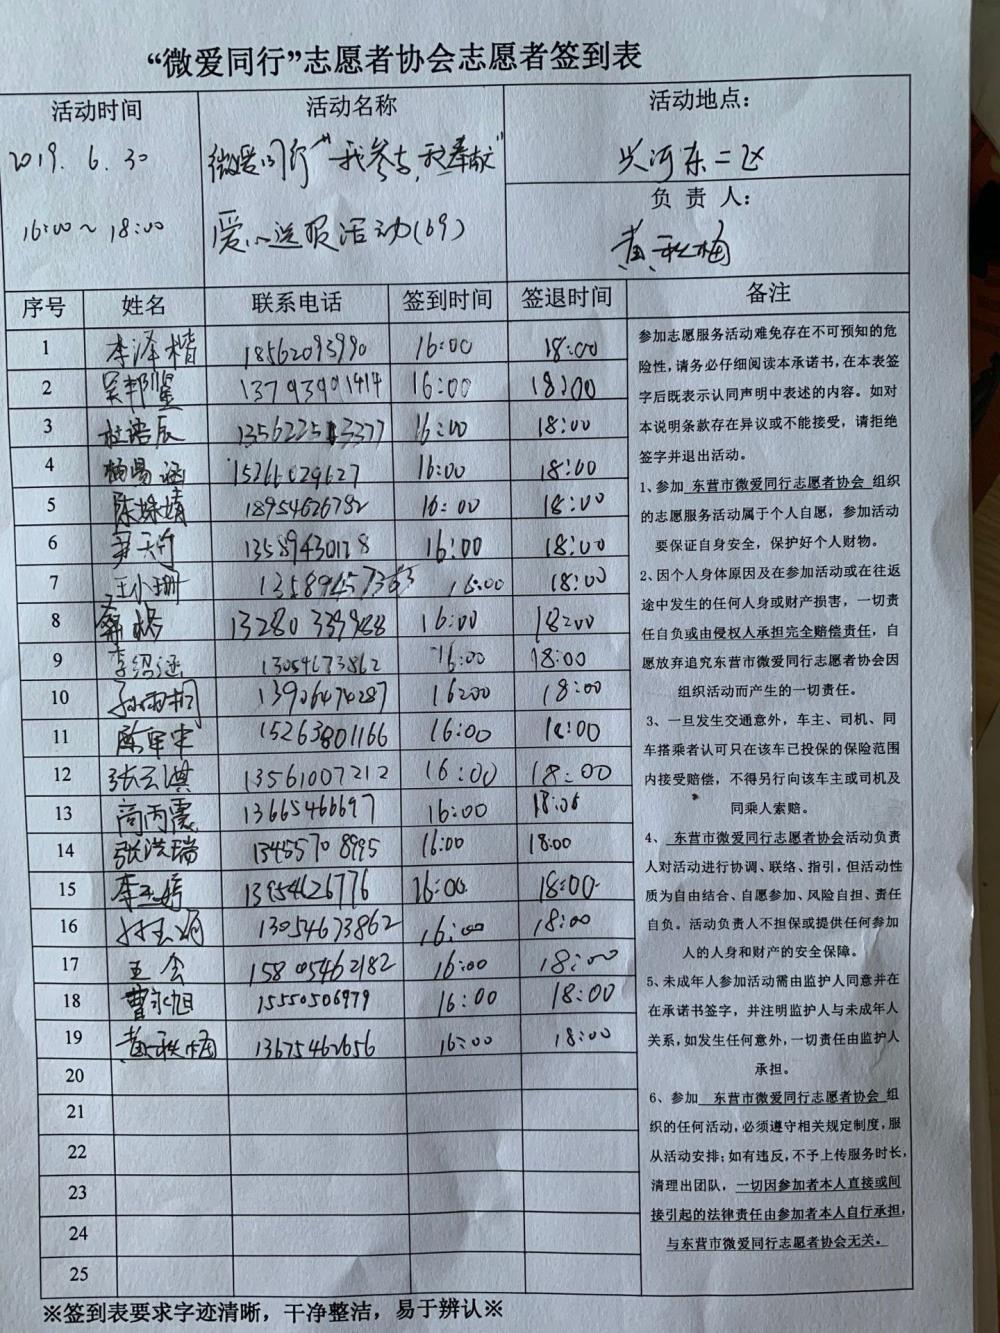 “微爱同行”志愿者协会志愿者签到表
活动时间 活动名称 活动地点：
2019. 6. 30 微爱同行“我参与，我奉献” 兴河东二区
16:00～18:00 爱心送暖活动(69) 负 责 人：
黄秋梅
序号 姓名 联系电话 签到时间 签退时间 备注
1 李泽楷 18562093990 16:00 18:00
2 吴邦星 13793901414 16:00 18:00
3 杜浩辰 16:00 18:00
4 杨易涵 15266029627 16:00 18:00
5 陈姝婧 18954626792 16:00 18:00
6 尹天竹 13589430178 16:00 18:00
7 王小珊 16:00 18:00
8 13280339988 16:00 18:00
9 李绍涵 13054673862 16:00 18:00
10 孙雨桐 13906474287 16:00 18:00
11 15263801166 16:00 18:00
12 张云淇 13561007212 16:00 18:00
13 商丙震 13665466697 16:00 18:00
14 张洪瑞 13455708995 16:00 18:00
15 李玉婷 13954626776 16:00 18:00
16 13054673862 16:00 18:00
17 王会 15805462182 16:00 18:00
18 曹永旭 15550506979 16:00 18:00
19 黄秋梅 13675462656 16:00 18:00
20
21
22
23
24
25
参加志愿服务活动难免存在不可预知的危
险性，请务必仔细阅读本承诺书，在本表签
字后既表示认同声明中表述的内容。如对
本说明条款存在异议或不能接受，请拒绝
签字并退出活动。
1、参加 东营市微爱同行志愿者协会 组织
的志愿服务活动属于个人自愿，参加活动
要保证自身安全，保护好个人财物。
2、因个人身体原因及在参加活动或在往返
途中发生的任何人身或财产损害，一切责
任自负或由侵权人承担完全赔偿责任，自
愿放弃追究东营市微爱同行志愿者协会因
组织活动而产生的一切责任。
3、一旦发生交通意外，车主、司机、同
车搭乘者认可只在该车已投保的保险范围
内接受赔偿，不得另行向该车主或司机及
同乘人索赔。
4、 东营市微爱同行志愿者协会活动负责
人对活动进行协调、联络、指引，但活动性
质为自由结合、自愿参加、风险自担、责任
自负。活动负责人不担保或提供任何参加
人的人身和财产的安全保障。
5、未成年人参加活动需由监护人同意并在
在承诺书签字，并注明监护人与未成年人
关系，如发生任何意外，一切责任由监护人
承担。
6、参加 东营市微爱同行志愿者协会 组
织的任何活动，必须遵守相关规定制度，服
从活动安排；如有违反，不予上传服务时长，
清理出团队，一切因参加者本人直接或间
接引起的法律责任由参加者本人自行承担，
与东营市微爱同行志愿者协会无关。
※签到表要求字迹清晰，干净整洁，易于辨认※